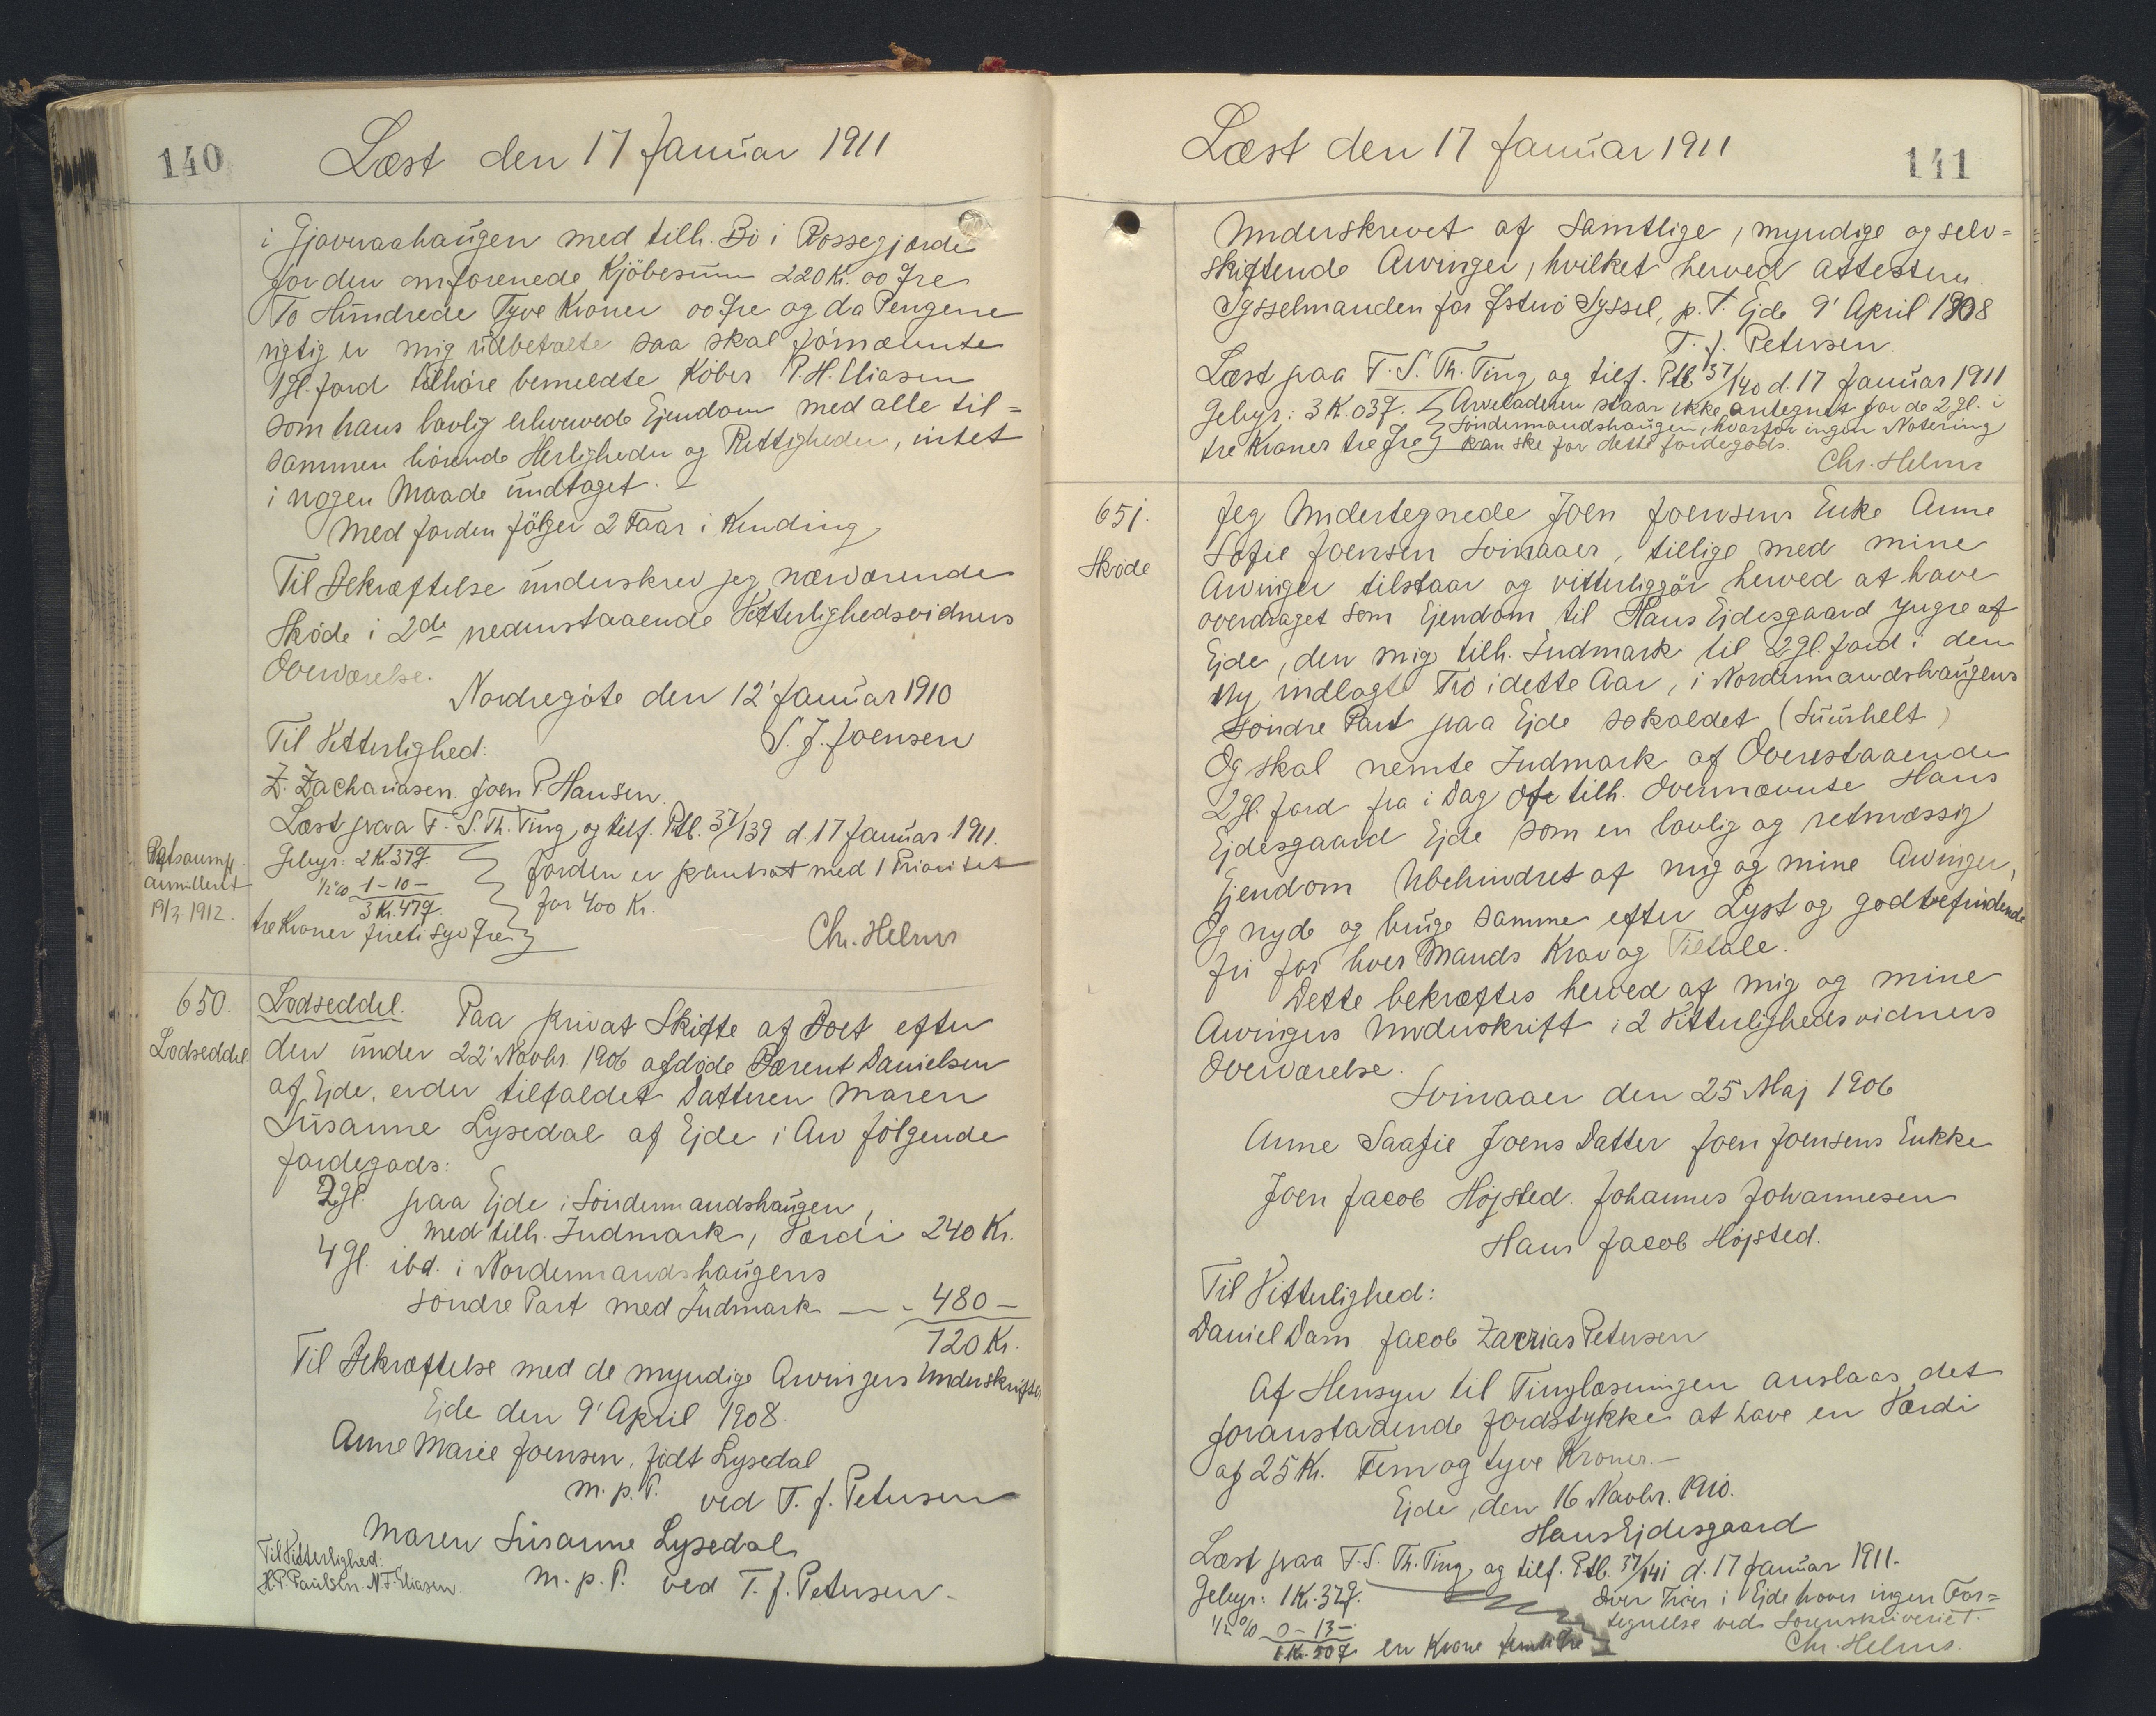 140
Læst den 17 Januar 1911
i Gjaveraahaugen med tilh. Bö i Rossegjerde
for den omforenede Kjöbesum 220 Kr. 00 Øre
To Hundrede Tyve Kroner 00 Øre og da Pengene
rigtig er mig udbetalte saa skal förnævnte
1 gl. Jord tilhöre bemeldte Köber P. H. Eliasen
som hans lovlig erhvervede Ejendom med alle til=
sammen hörende Herligheder og Rettigheder, intet
i nogen Maade undtaget. —
Med Jorden fölger 2 Faar i Kending
Til Bekræftelse underskrev jeg nærværende
Sköde i 2de nedenstaaende Vitterlighedsvidners
Overværelse.
Nordregöte den 12' Januar 1910
S. J. Joensen
Til Vitterlighed:
Z. Zachariasen. Joen P. Hansen.
Læst paa F. S. Th. Ting og tilf. Ptb. 37/139 d. 17 Januar 1911.
Gebyr: 2 Kr 37 Ø.
1/2 % 1 - 10 -
3 Kr. 47 Ø.
tre Kroner fireti syv Øre
Jorden er pantsat med 1 Prioritet
for 400 Kr.
Chr. Helms
annulleret
19/3. 1912.
650.
Lodseddel
Lodseddel. Paa privat Skifte af Boet efter
den under 22' Novbr. 1906 afdöde Bærent Danielsen
af Ejde, er der tilfaldet Datteren Maren
Susanne Lysedal af Ejde i Arv fölgende
Jordegods:
2 gl. paa Ejde i Söndermandshaugen,
med tilh. Indmark, Værdi 240 Kr.
4 gl. ibd. i Nordermandshaugens
söndre Part med Indmark — - 480 —
720 Kr.
Til Bekræftelse med de myndige Arvingers Underskrifter
Ejde den 9' April 1908.
Anne Marie Joensen, födt Lysedal
m. p. P. ved T. J. Petersen
Maren Susanne Lysedal
m. p. P. ved T. J. Petersen.
Til Vitterlighed:
H. P. Paulsen. N. F. Eliasen.
141
Læst den 17 Januar 1911
Underskrevet af samtlige, myndige og selv=
skiftende Arvinger, hvilket herved attesteres.
Sysselmanden for Østerö Syssel, p. T. Ejde 9' April 1908
T. J. Petersen.
Læst paa F. S. Th. Ting og tilf. Ptb. 37/140 d. 17 Januar 1911
Gebyr: 3 K. 03 Ø.
tre Kroner tre Øre
Arveladeren staar ikke antegnet for de 2 gl. i
Söndermandshaugen, hvorfor ingen Notering
kan ske for dette Jordegods.
Chr. Helms
651.
Sköde
Jeg Undertegnede Joen Joensens Enke Anne
Sofie Joensen Svinaaer, tillige med mine
Arvinger tilstaar og vitterliggör herved at have
overdraget som Ejendom til Hans Ejdesgaard yngre af
Ejde, den mig tilh. Indmark til 2 gl. Jord i den
ny indlagte Trö i dette Aar, i Nordermandshaugens
söndre Part paa Ejde sokaldet (Suurhelt)
Og skal nemte Indmark af Ovenstaaende
2 gl. Jord fra i Dag af tilh. Overnævnte Hans
Ejdesgaard Ejde som en lovlig og retmæssig
Ejendom Ubehindret af mig og mine Arvinger,
Og nyde og bruge samme efter Lyst og godtbefindende
fri for hver Mands Krav og Tiltale.
Dette bekræftes herved af mig og mine
Arvingers Underskrift i 2 Vitterlighedsvidners
Overværelse.
Svinaaer den 25 Maj 1906
Anne Saafie Joens Datter Joen Joensens Enkke
Joen Jacob Höjsted. Johannes Johannesen
Hans Jacob Höjsted.
Til Vitterlighed:
Daniel Dam. Jacob Zacrias Petersen
Af Hensyn til Tinglæsningen anslaas det
foranstaaende Jordstykke at have en Værdi
af 25 Kr. Fem og tyve Kroner. —
Ejde, den 16 Novbr. 1910.
Hans Ejdesgaard
Læst paa F. S. Th. Ting og tilf. Ptb. 37/141 d. 17 Januar 1911.
Gebyr: 1 Kr. 37 Ø.
1/2 % 0 - 13 -
1 Kr. 50 Ø. en Krone femti Øre
Over Tröer i Ejde haves ingen For=
tegnelse ved Sorenskriveriet.
Chr. Helms.